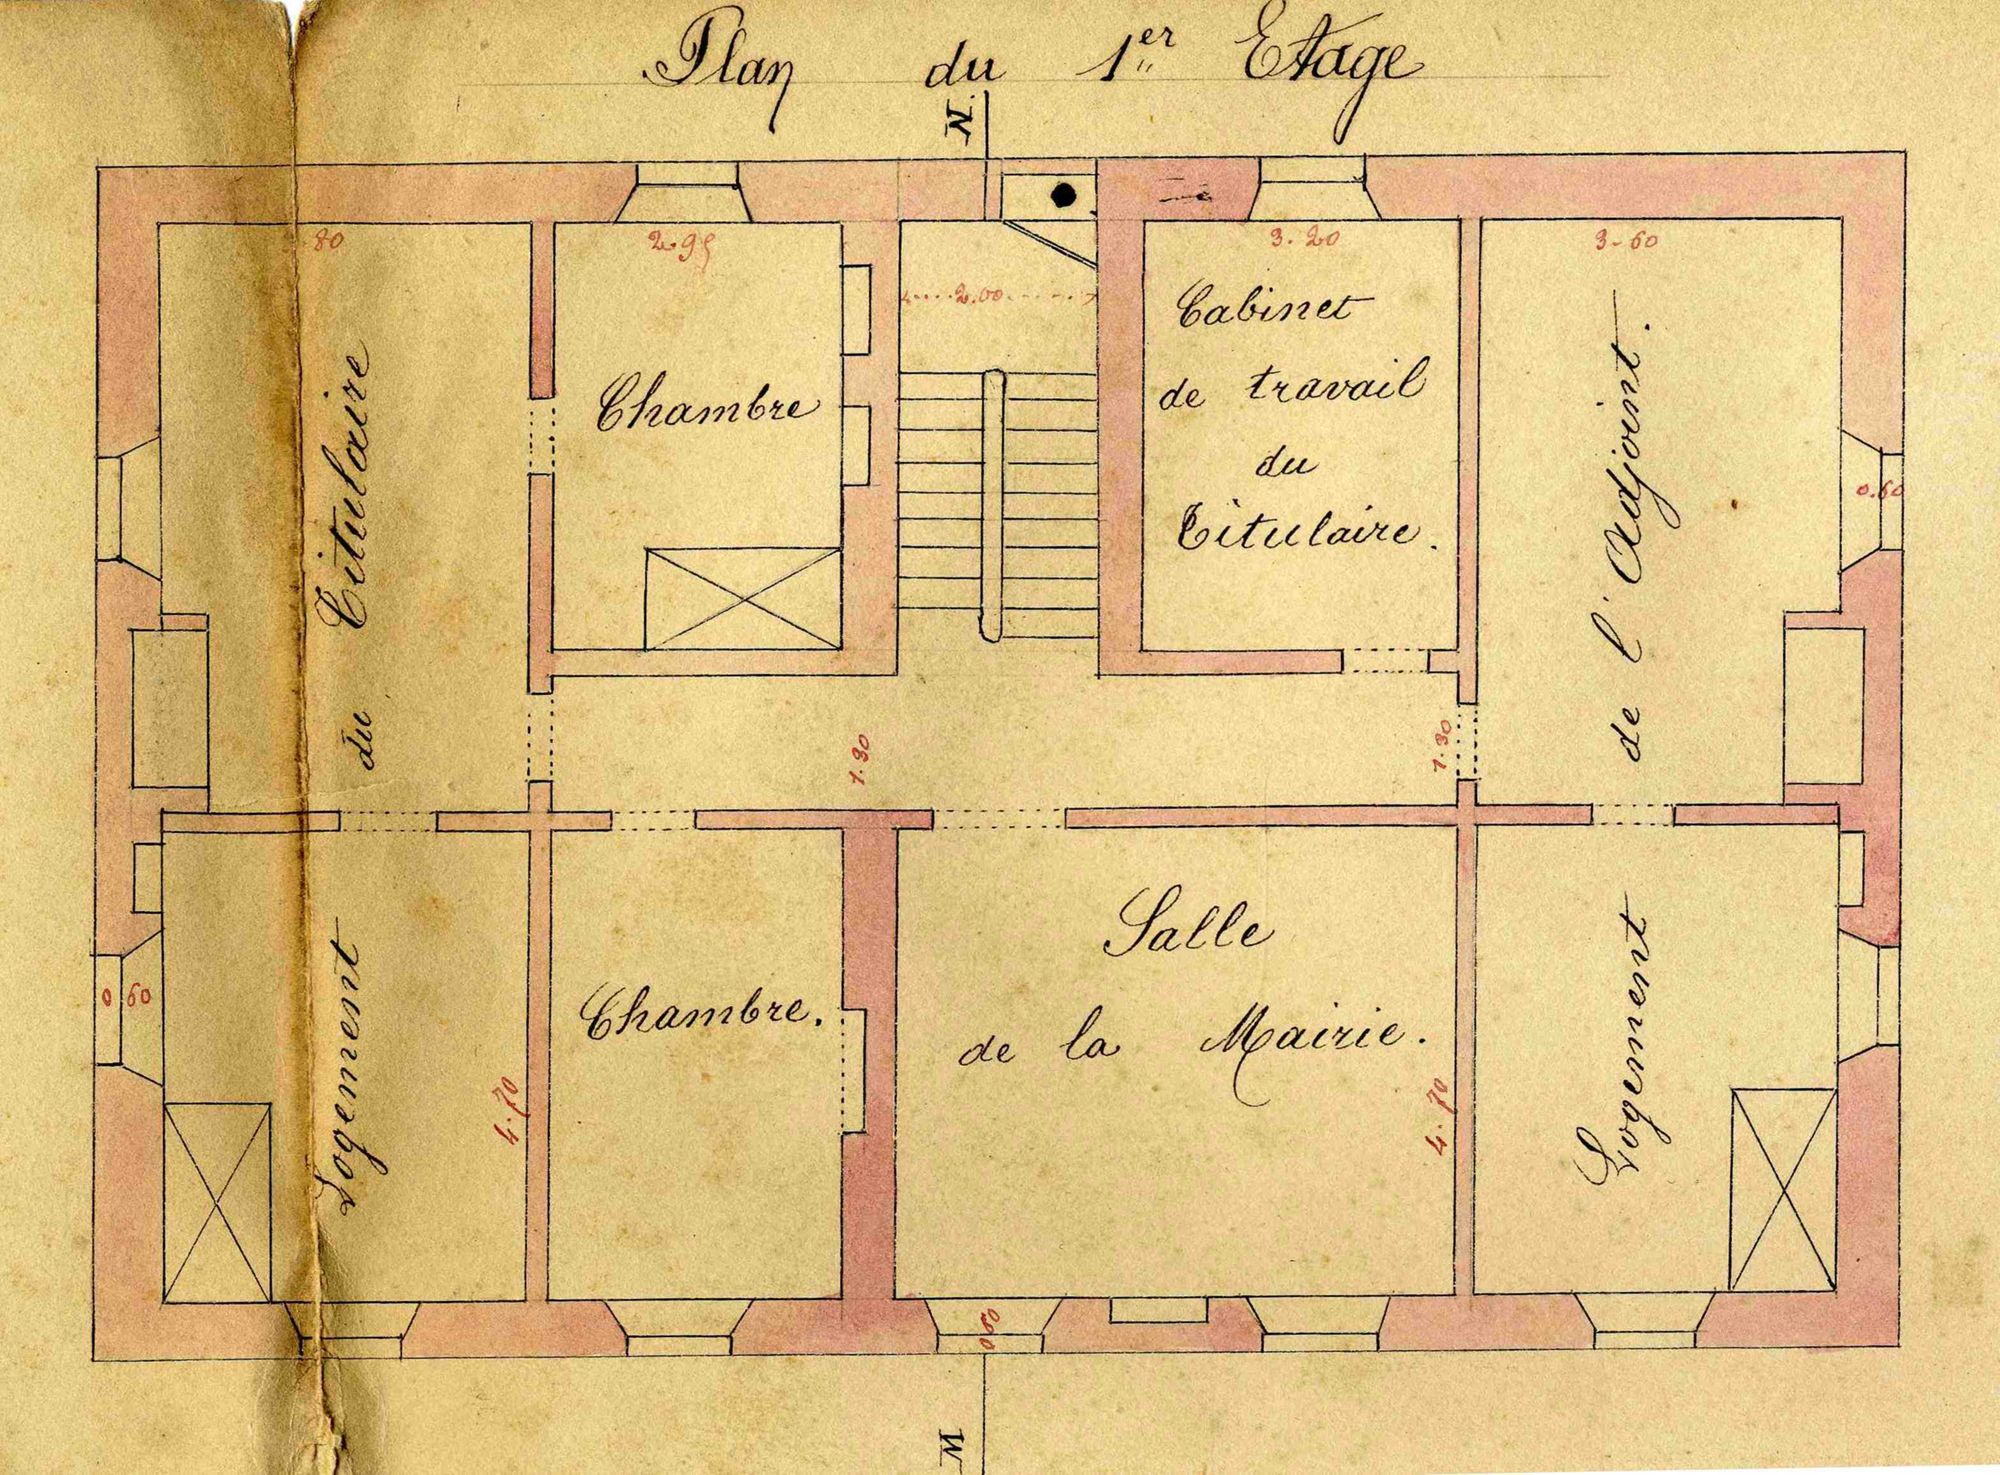 Plan du 1er Etage
N.
80
2.95
3.20
3.60
2.00
Cabinet
de travail
du
Titulaire.
Chambre
0.60
1.30
1.30
Logement du Titulaire
Logement de l'Adjoint.
Salle
de la Mairie.
Chambre.
0 60
4.70
4.70
0.60
M